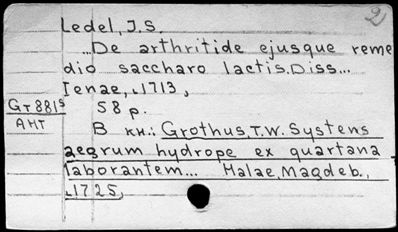 2
Ledel, J.S.
...De arthritide ejusque reme
dio saccharo lactis. Diss...
Ienae, 1713,
Gт 881⁵ 58 p.
АНТ
В кн.: Grothus, T.W. Systens
aegrum hydrope ex quartana
laborantem... Halae, Magdeb.,
1725,